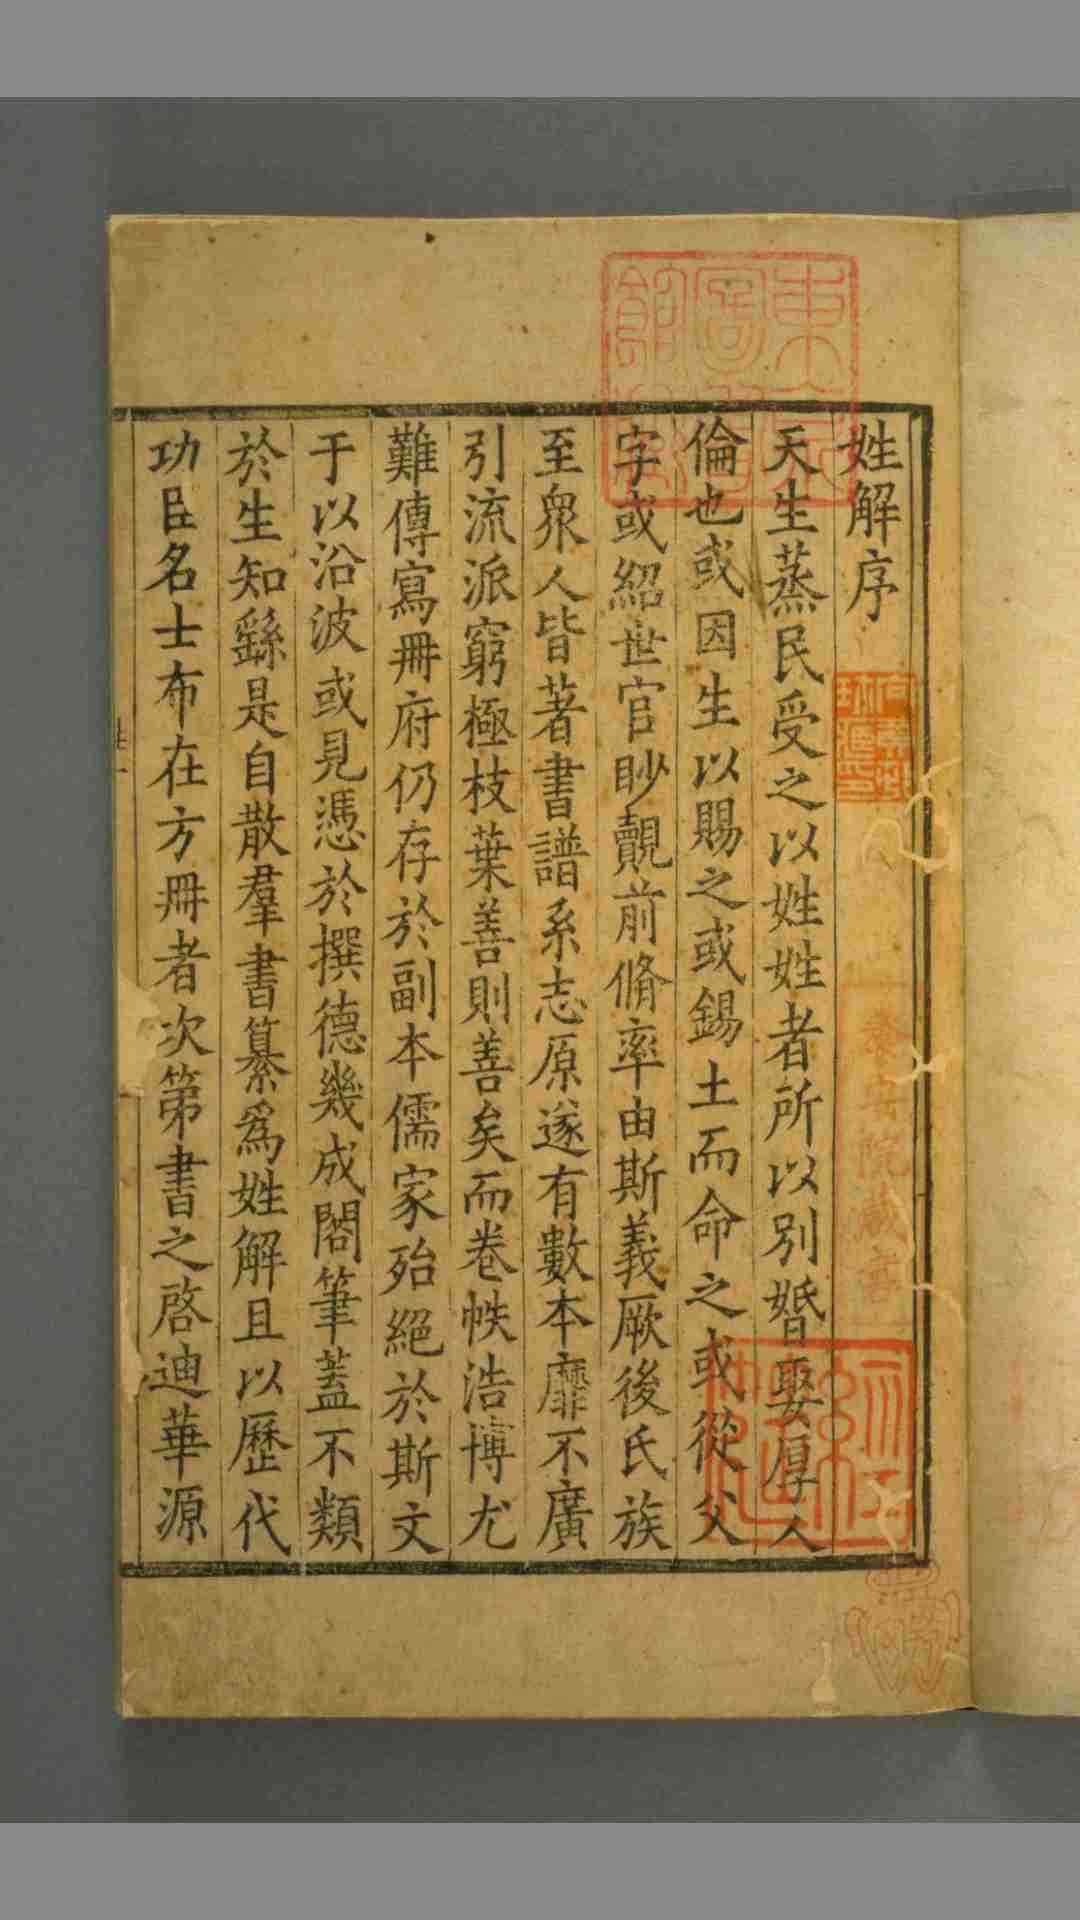 姓解序
天生蒸民受之以姓姓者所以別婚娶厚人
倫也或因生以賜之或錫土而命之或從父
字或紹世官眇覿前脩率由斯義厥後氏族
至衆人皆著書譜系志原遂有數本靡不廣
引流派窮極枝葉善則善矣而卷帙浩博尤
難傳寫冊府仍存於副本儒家殆絕於斯文
于以沿波或見憑於撰德幾成閣筆蓋不類
於生知繇是自散羣書纂爲姓解且以歷代
功臣名士布在方冊者次第書之啓迪華源
養安院藏書